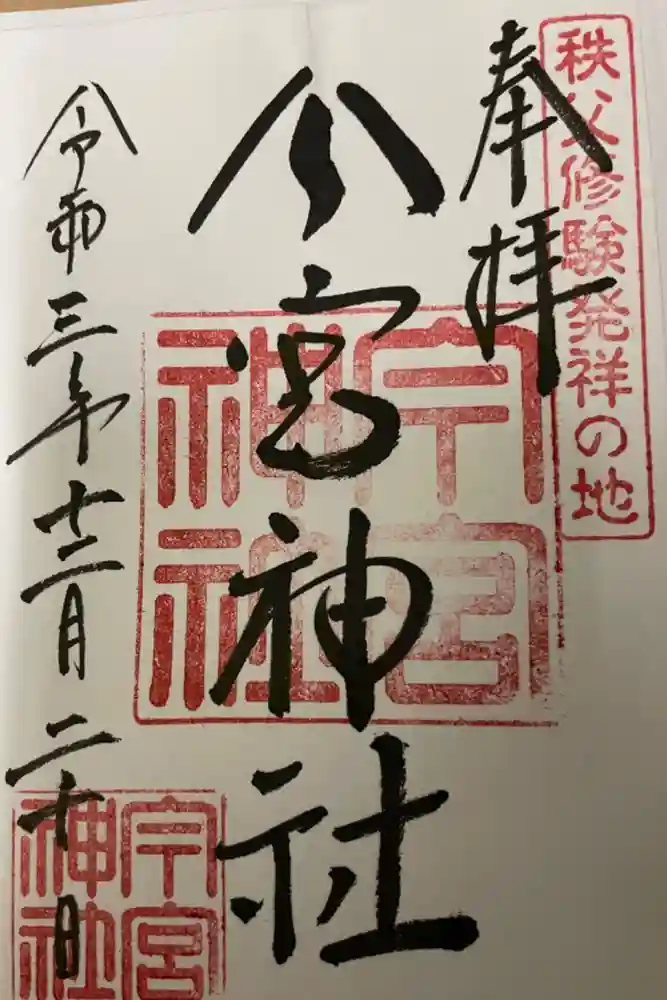 秩父修験発祥の地
奉拝
今宮神社
今宮
神社
令和三年十二月二十日
今宮
神社